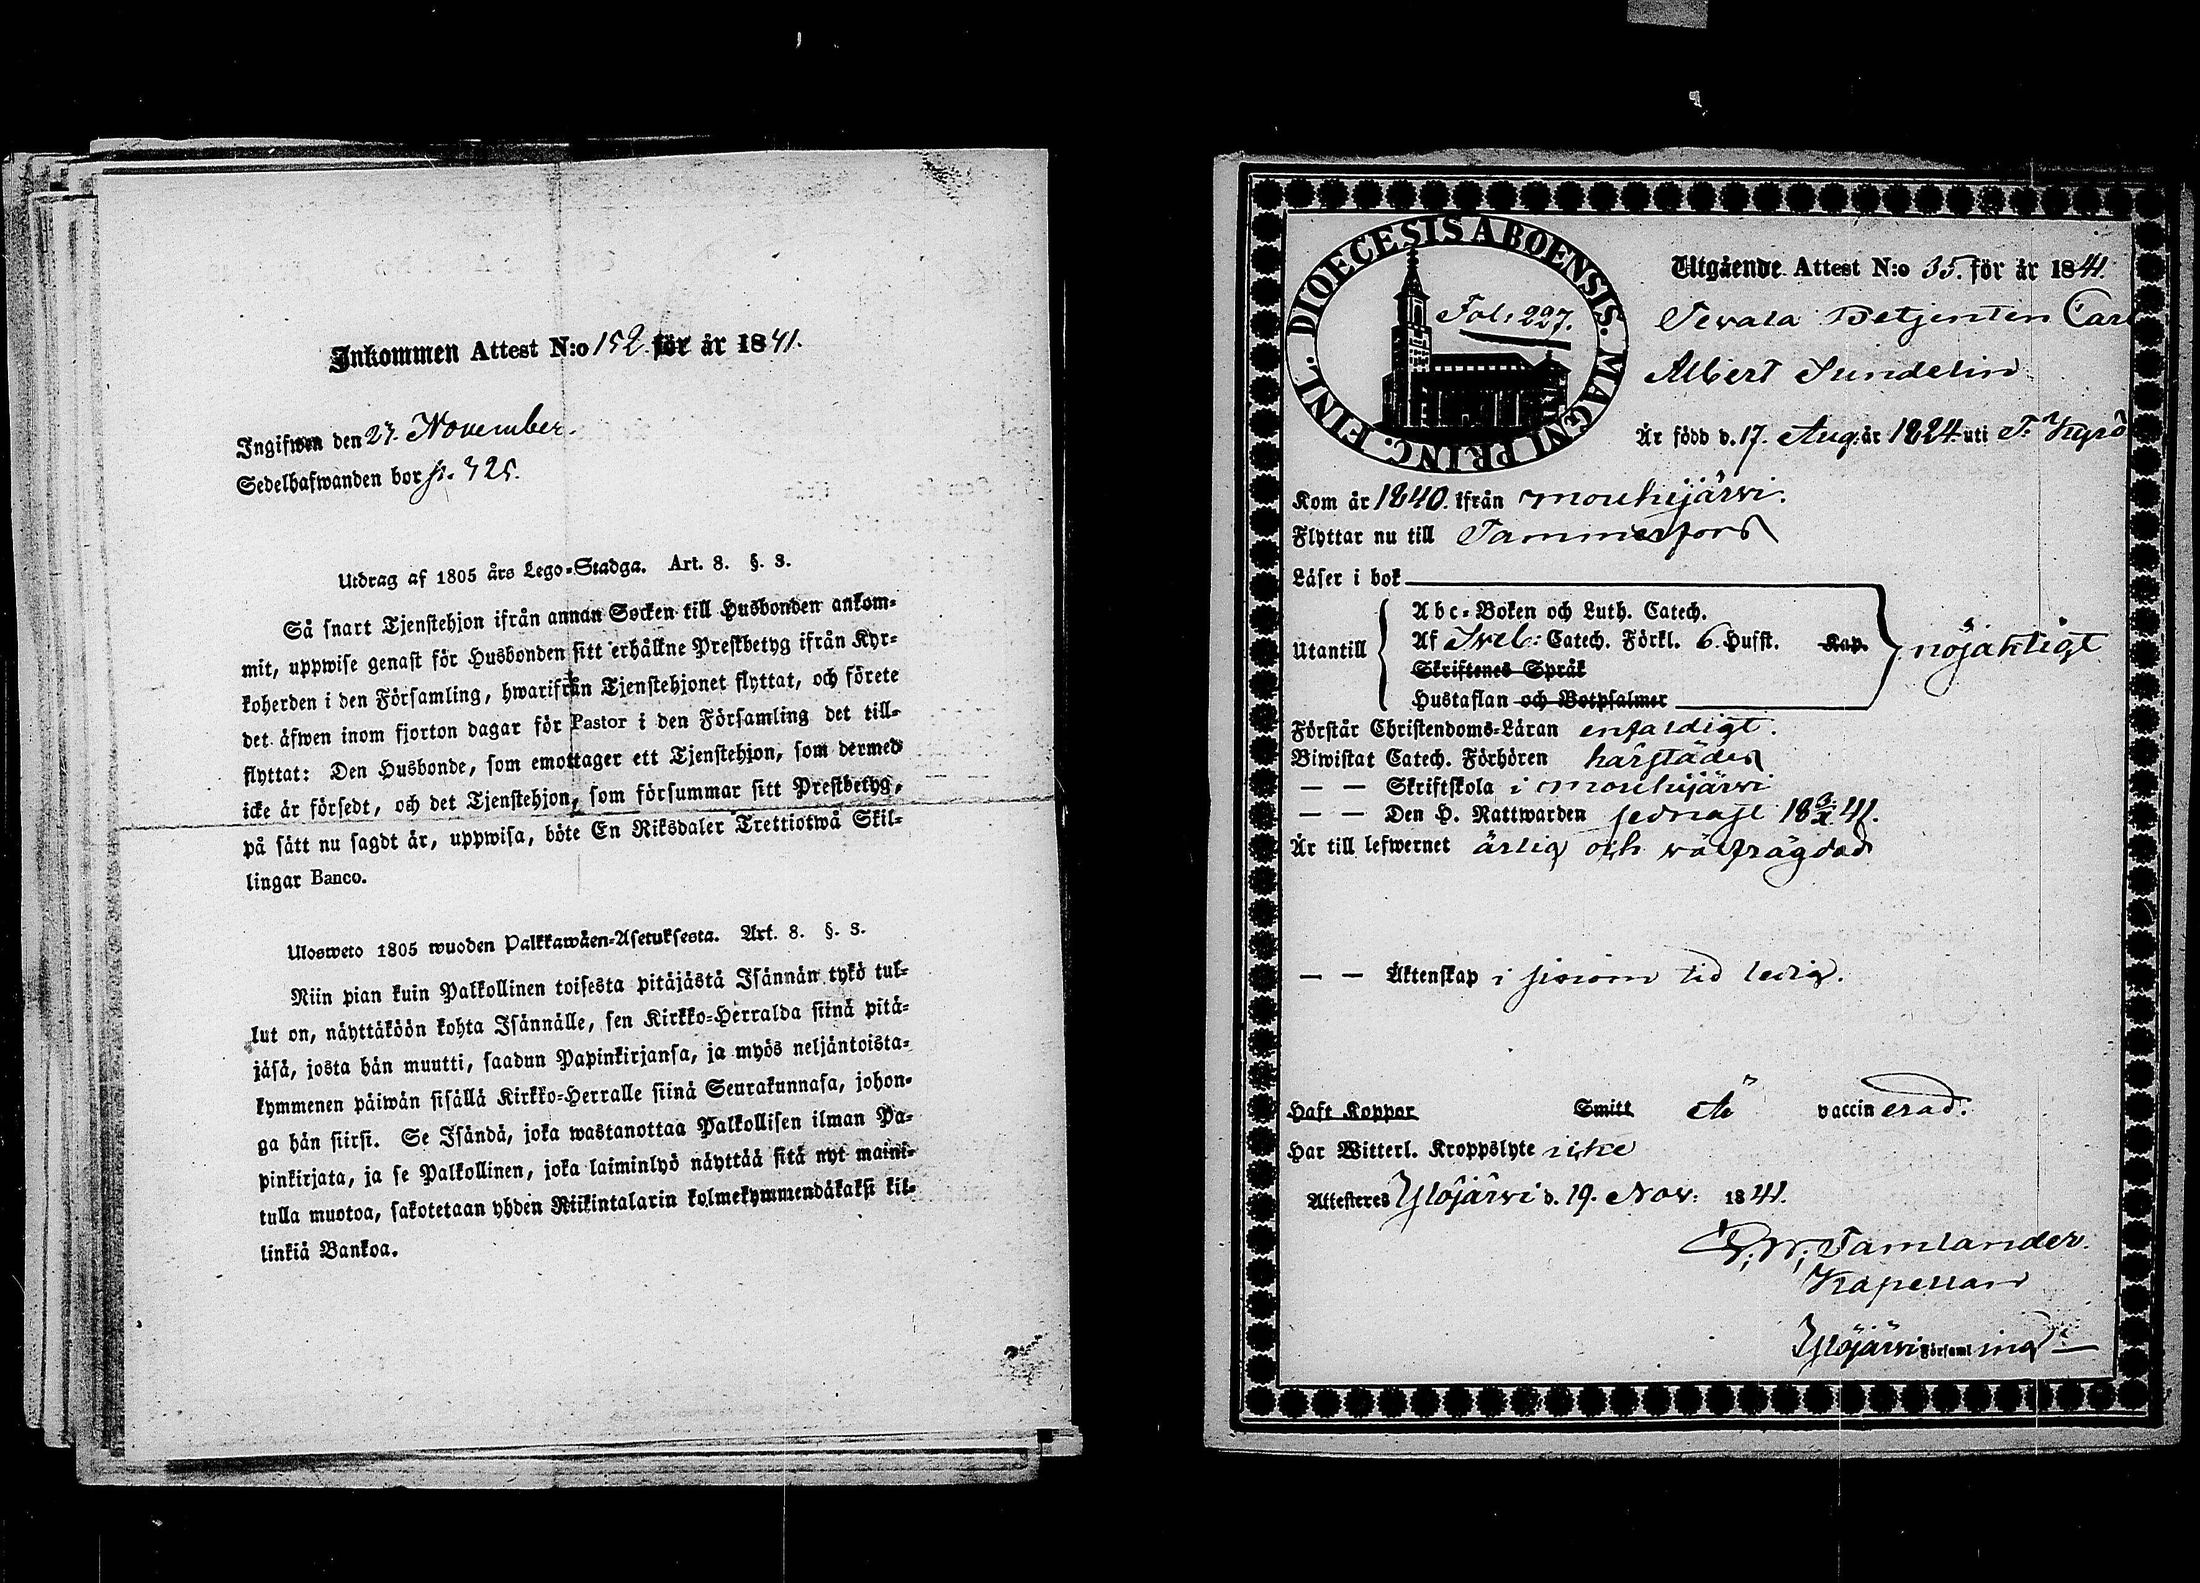 Inkommen Attest N:o 152 för år 1841.
Ingifwen den 27. November.
Sedelhafwanden bor p. 325.
Utdrag af 1805 års Lego-Stadga. Art. 8. §. 3.
Så snart Tjenstehjon ifrån annan Socken till Husbonden ankom-
mit, uppwise genast för Husbonden sitt erhållne Prestbetyg ifrån Kyr-
koherden i den Församling, hwarifrån Tjenstehjonet flyttat, och förete
det äfwen inom fjorton dagar för Pastor i den Församling det till-
flyttat: Den Husbonde, som emottager ett Tjenstehjon, som dermed
icke är försedt, och det Tjenstehjon, som försummar sitt Prestbetyg,
på sätt nu sagdt är, uppwisa, böte En Riksdaler Trettiotwå Skil-
lingar Banco.
Ulosweto 1805 wuoden Palkkawäen-Asetuksesta. Art. 8. §. 3.
Niin pian kuin Palkollinen toisesta pitäjästä Isännän tykö tul-
lut on, näyttäköön kohta Isännälle, sen Kirkko-Herralda siinä pitä-
jäsä, josta hän muutti, saadun Papinkirjansa, ja myös neljäntoista-
kymmenen päiwän sisällä Kirkko-Herralle siinä Seurakunnasa, johon-
ga hän siirsi. Se Isändä, joka wastanottaa Palkollisen ilman Pa-
pinkirjata, ja se Palkollinen, joka laiminlyö näyttää sitä nyt maini-
tulla muotoa, sakotetaan yhden Riikintalarin kolmekymmendäkaksi kil-
linkiä Bankoa.
DIOECESIS ABOENSIS. MAGNI PRINC. FINL.
Fol: 227.
Utgående Attest N:o 35. för år 1841.
Tevala Betjenten Carl
Albert Sundelin
Är född d. 17. Aug. år 1824 uti T. Kyrö
Kom år 1840. ifrån Mouhijärvi.
Flyttar nu till Tammerfors
Läser i bok
Utantill
Abc-Boken och Luth. Catech.
Af Sveb: Catech. Förkl. 6. Hufst. Kap.
Skriftenes Språk
Hustaflan och Botpsalmer
nöjaktigt
Förstår Christendoms-Läran enfaldigt.
Biwistat Catech. Förhören härstädes
— — Skriftskola i Mouhijärvi
— — Den H. Nattwarden sednast 18 3/X 41.
Är till lefwernet ärlig och välfrägdad
— — Äktenskap i sinom tid ledig.
Haft Koppor Smitt Är vaccinerad.
Har Witterl. Kroppslyte icke
Attesteres Ylöjärvi d. 19. Nov: 1841.
G. W. Tamlander.
Kapellan
Ylöjärvi Församling